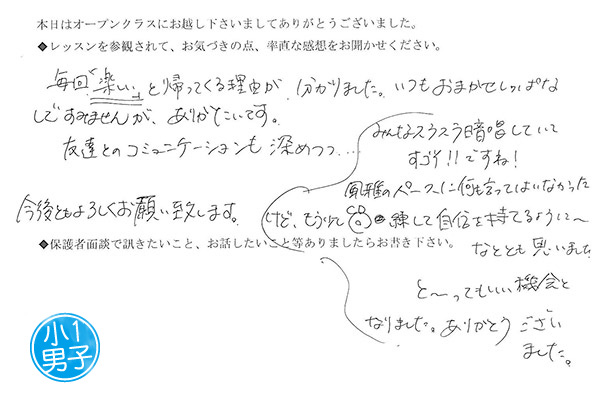 本日はオープンクラスにお越し下さいましてありがとうございました。
◆レッスンを参観されて、お気づきの点、率直な感想をお聞かせください。
毎回「楽しい」と帰ってくる理由が分かりました。いつもおまかせしっぱな
しですみませんが、ありがたいです。
友達とのコミュニケーションも深めつつ…
今後ともよろしくお願い致します。
みんなスラスラ暗唱していて
すごイ!!ですね!
風雅のペースに何も言ってはいなかった
けど、もう少し 練して自信を持てるように〜
なととも思いました
と〜ってもいい機会と
なりました。ありがとうござい
ました。
◆保護者面談で訊きたいこと、お話したいこと等ありましたらお書き下さい。
小1
男子